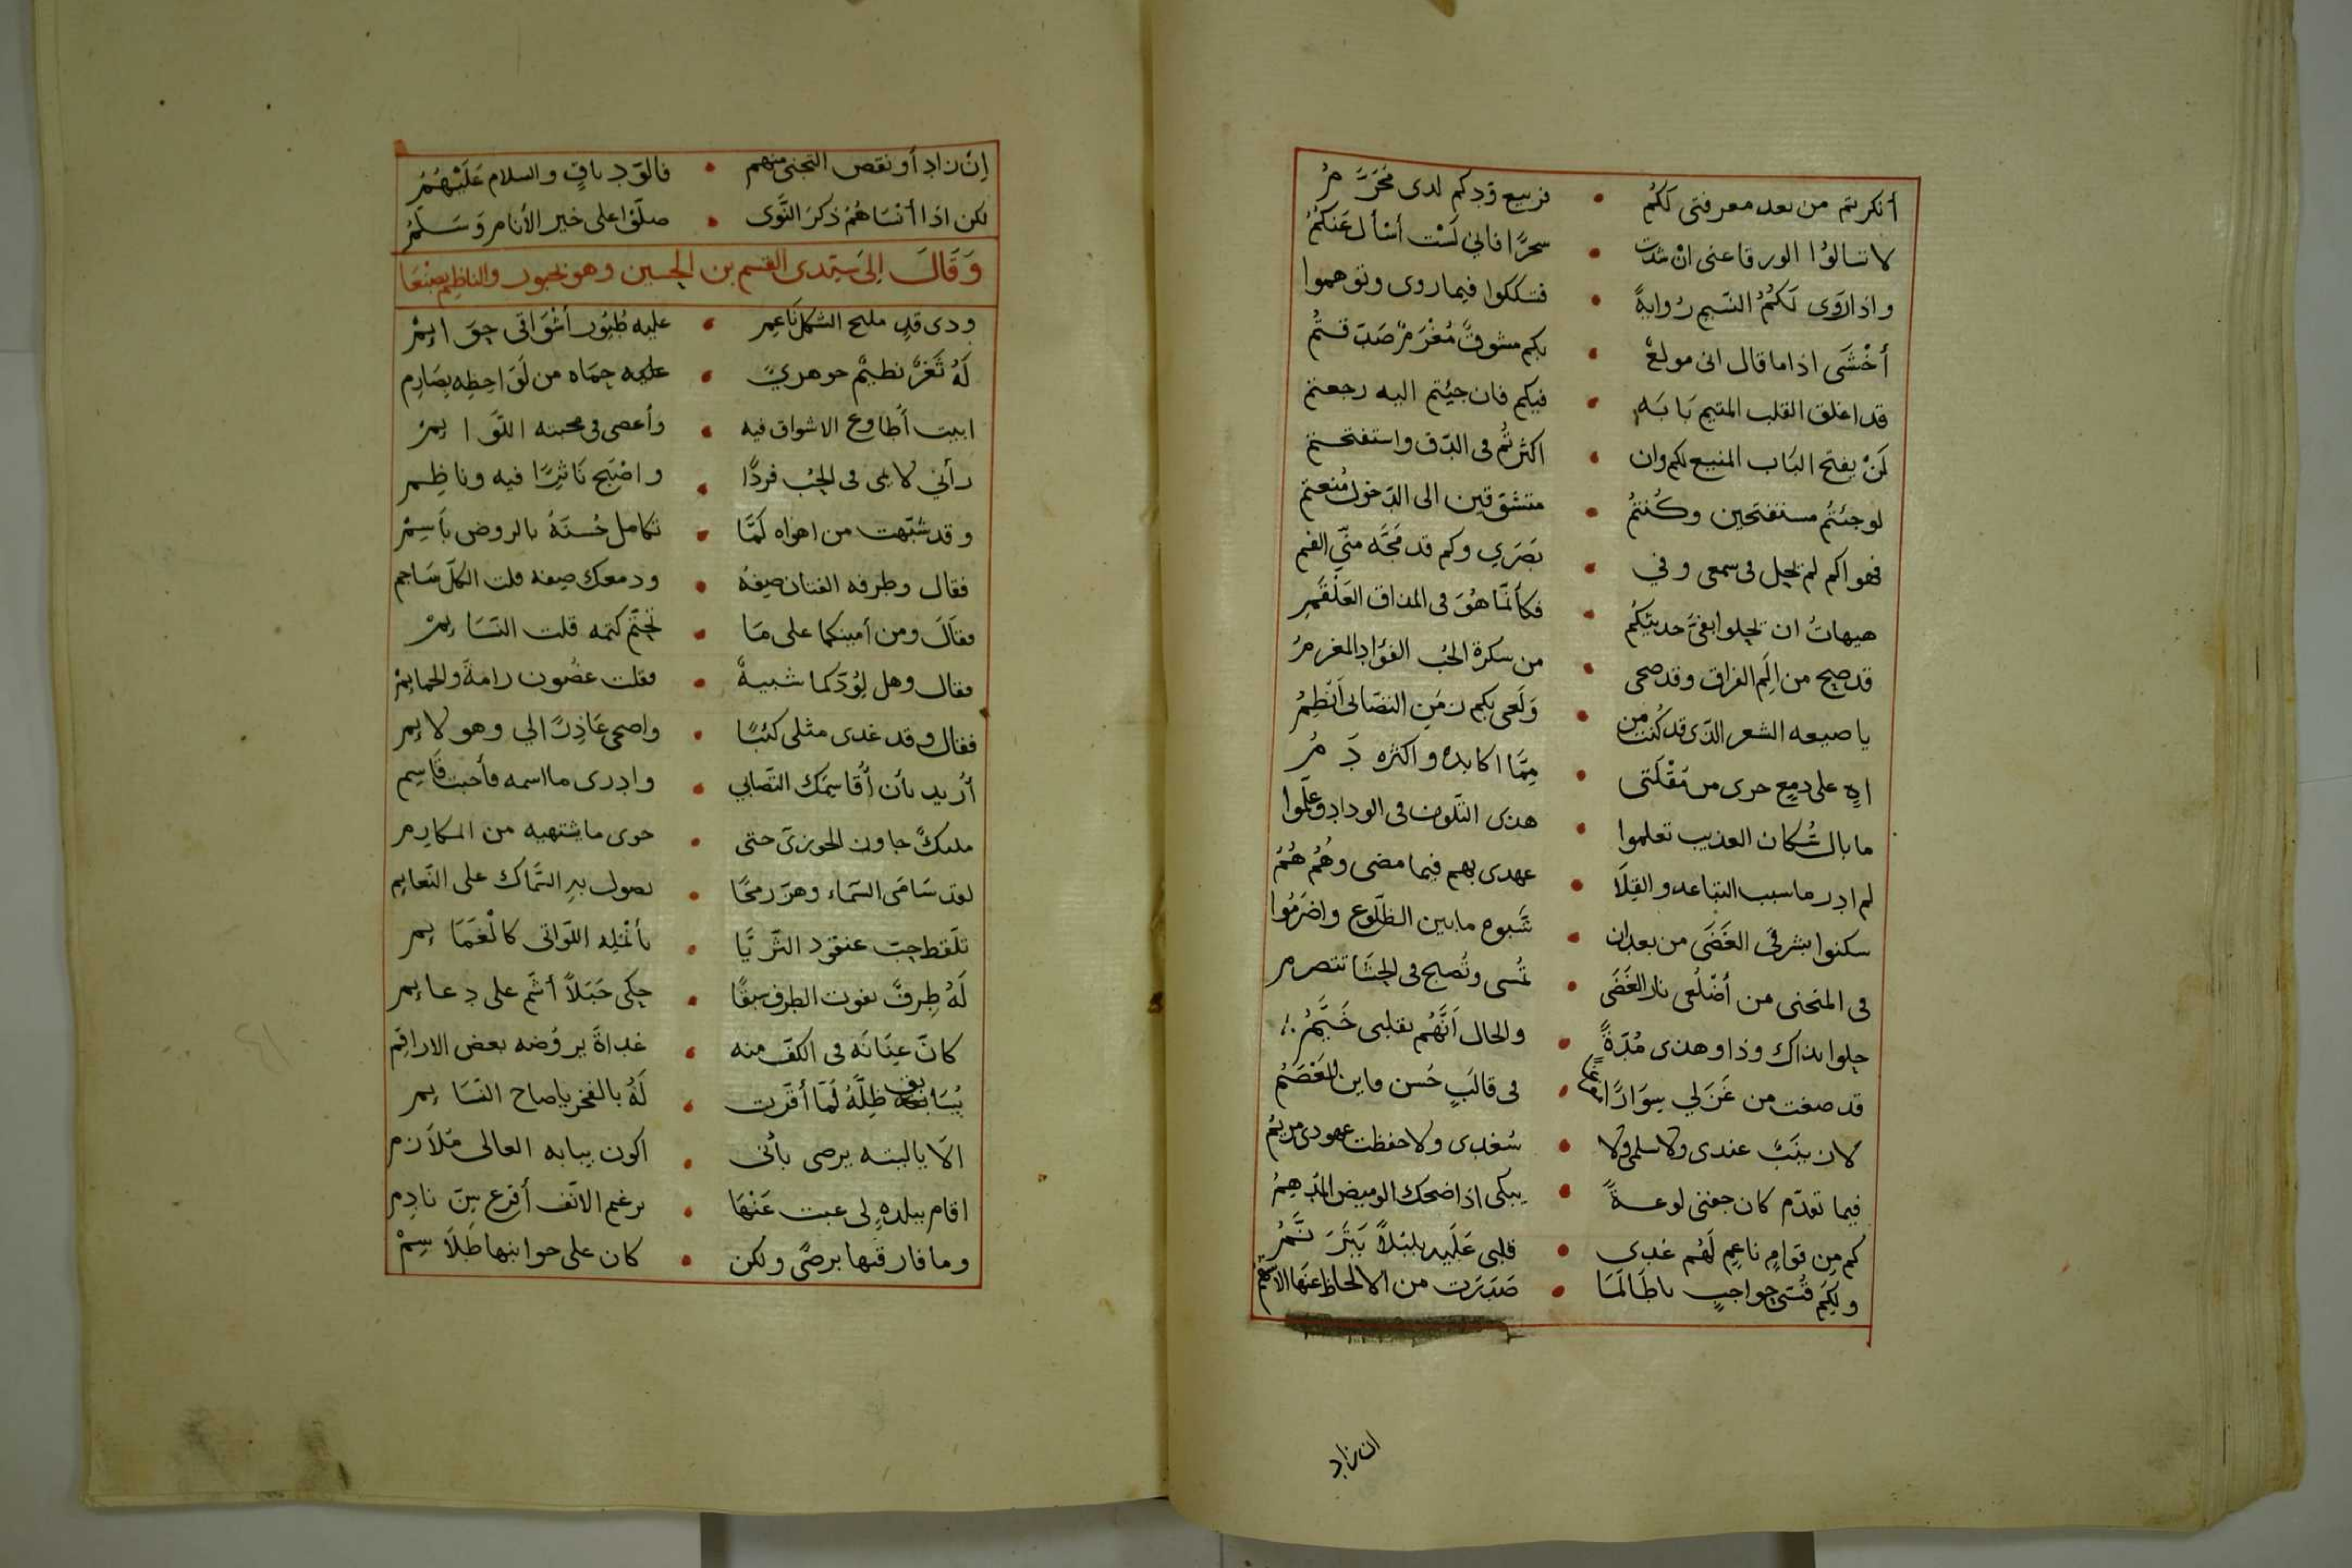 أنكرتم من بعد معرفتى لكُم • فربيع وّدكم لدى مُحَرَّمُ
لا تسالوُا الورقا عنى انْ شدت • سحرًا فانى لَسْت أسْأل عَنكُمُ
واذا رَوَى لَكُمُ النسَيم رُوايةً • فتككوا فيما روى وتوهموا
أخْشَى اذا ما قال انى مولعٌ • بكم مشوقٌ مُغْرَمٌ صَدّقتُم
قد اغلق القلب المتيم بَابَه • فيكم فان جيُتم اليه رجعتم
لَنْ يفتح البَاب المنيع لكم وان • اكثرتُم فى الدّق واستفتحتم
لو جئتُم مستفتحين وكُنتمُ • متشوّقين الى الدّخول مُنعتم
فهواكم لم يحِل فى سمعى وفي • بَصَرَي وكم قد مَجَّه منّي الفم
هيهاتُ ان يحلوا بفىَّ حديثكُم • فكأنّما هُوَ فى المذاق العَلْقَمِ
قد صح من اَلِم الفراق وقد صحى • من سكرة الحُب الفؤاد المغرمُ
يا صيعه الشعر الذّى قد كُنت من • وَلَعى بكم زمَنِ التصَابى اَنْظِمُ
اهٍ على دمعٍ جرى من مُقْلَتى • مِمَّا اكابده واكثره دَمُ
ما بال سُكان العذيب تعلموا • هذى التَلّون فى الوداد وعَلّموا
لم ادر ما سبب التباعد والقِلَا • عهدى بهم فيما مضى وهُمُ هُمُ
سكنوا بشرقىَ الغَضَى من بعد ان • شَبوه ما بين الظّلوع واضرَمُوا
فى المنحنى من أضْلُعى نار الغَضَى • تُمسى وتُصبح فى الحِشَا تتصرم
حلوا بذاك وذا وهذى مُدّةً • والحال اَنَّهُم بقلبى خَيَّمُ
قد صغت من غَزَلي سِوَارًا • فى قالَبٍ حُسن واين المعْصَمُ
لا زينَبٌ عندى ولا سلمى ولا • سُعْدى ولا حفظت عهودى مريمُ
فيما تقدّم كان جفنى لوعةً • يبكى اذا ضحك الوميض المَدهِمُ
كم مِن قوامٍ ناعِمٍ لَهُم غدى • قلبى عَلَيه بلبُلاً يَتَرَنَّمُ
ولِكَم قُسَىّ حواجبٍ يا طَالَمَا • صَدَرَت من الالحاظ عنها الاَسْهُمُ
ان زاد
إنْ زاد أو نقص التجنى منهم • فالوّد باقٍ والسلام عَلَيْهُمُ
لكن اذا أنسَاهُمُ ذكرَ النَّوى • صلَّوْا على خير الأنام وَسَلَّمُ
وَقَالَ اِلىَ سيّدى القسم بن الحسين وهو بحبور والناظم بصنعا
ودى قدٍ مليح الشكل نَاعِمِ • عليه طُيُور أشْوَاقى حِوَايِمْ
لَهُ ثَغرٌ نظيْم جوهريٌ • عليه حِمَاه من لَوَاحِظِه بِصَارِم
ابيت أُطاوع الاشواق فيه • وأعصى فى محبته اللَّوَايِمْ
رأني لايمى فى الحُب فردًا • واصْبَح نَاثِرًا فيه وناظِم
وقد شبّهت من اهواه لَمَّا • تكامل حُسنَهُ بالروض بَاسِمْ
فقال وطرفه الفتان صِفهُ • ودمعك صِفه قلت الكلّ سَاجم
فقَالَ ومن أمينكما على مَا • تحَتّم كتمه قلت النسَايِمْ
فقال وهل لِوُدّكما شبيهٌ • فقلت غصُون رامةَ والحمايِمْ
فقال وقد غدى مثلى كئبًا • واضحى عَاذِرًا لي وهو لايِم
أُريد بأن أُقاسِمَك التصَابي • وادرى ما اسمه فأجبت قَاسِم
مليكٌ جاوز الجوزىَ حتى • حوى ما يشتهيه من المكارِم
لقد سَامَى السَماء وهزّ رمحًا • يصول به السّماك على النّعايم
تلَقط حبّ عنقود الثَرَيَّا • بأنمُلِه اللّواتى كالْغَمَايِم
لَهُ طِرفٌ يفوت الطرف سبقًا • حِكى جَبَلاً أشَم على دعايم
كانّ عِنَانَه فى الكفّ منه • غداةَ يروُضه بعض الاراقم
يُسَابق ظِلَّهُ لَمّا أقّرت • لَهُ بالفخر ياصاح النسَايِم
الَا ياليته يرضى بأنى • اكون ببابه العالى مُلاَزم
اقام ببلدةٍ لى غبت عَنْهَا • برغم الاَنف أقرع سِنّ نادِم
وما فارقتها برضىً ولكن • كان على جوانبها طَلاَسِمْ